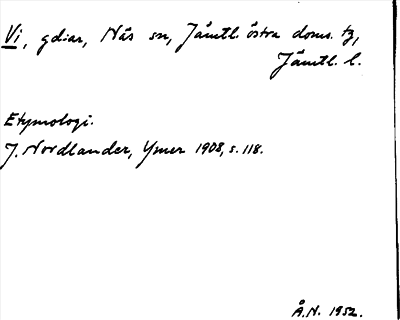 Vi, gdiar, Näs sn, Jämtl. östra doms. tg,
Jämtl. l.
Etymologi.
J. Nordlander, Ymer 1908, s. 118.
Å.N. 1952.